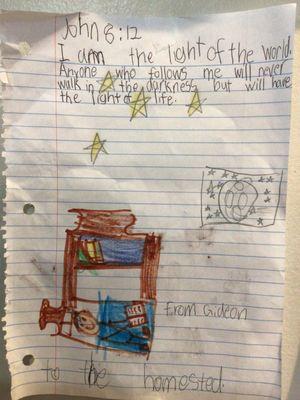 John 8:12
I am the light of the world.
Anyone who follows me will never
walk in the darkness, but will have
the light of life.
From Gideon
to the homested.